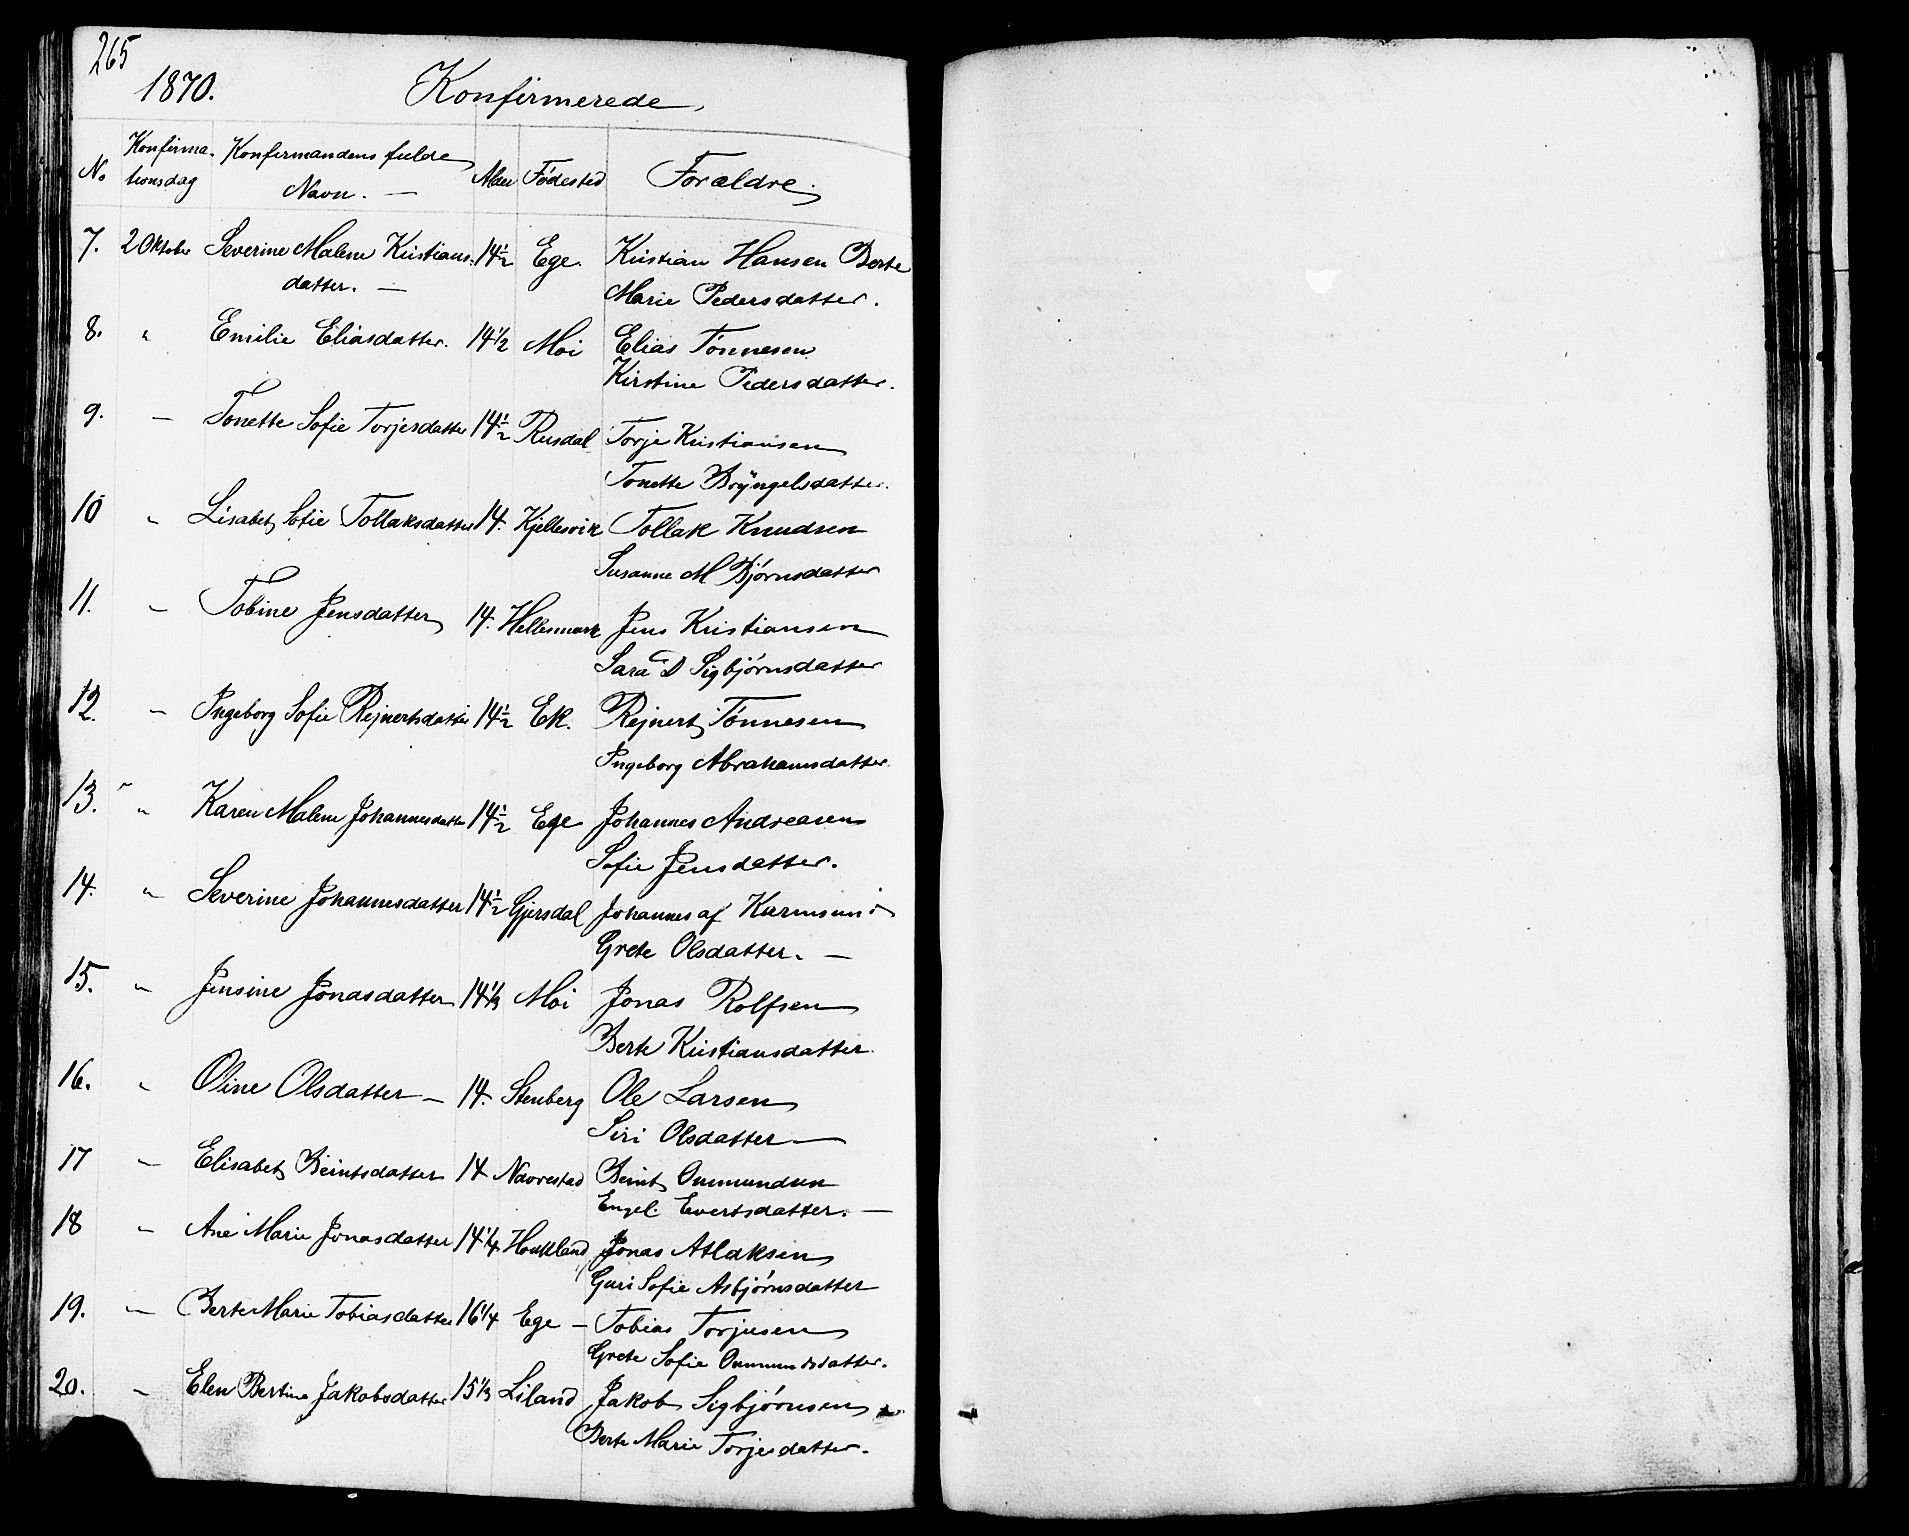 265
1870. Konfirmerede.
No Konfirma-tionsdag Konfirmandens fulde Navn. — Alder Fødested Forældre.
7. 2 Oktober Severine Malene Kristians- 14½ Ege. Kristian Hansen Berte
datter. — Marie Pedersdatter.
8. " Emilie Eliasdatter. 14 1/2 Moi Elias Tønnesen
Kirstine Pedersdatter.
9. — Tonette Sofie Torjesdatter 14½ Rusdal Torje Kristiansen
Tonette Brÿngelsdatter.
10 " Lisabet Sofie Tollaksdatter 14. Kjellesvik Tollak Knudsen
Susanne M Bjørnsdatter
11. — Tobine Jensdatter 14. Hellesmark Jens Kristiansen
Sara D Sigbjørnsdatter
12. — Ingeborg Sofie Rejnertsdatter 14½ Ek. Rejnert Tønnesen
Ingeborg Abrahamsdatter.
13. " Karen Malene Johannesdatter 14½ Ege Johannes Andreasen
Sofie Jensdatter.
14. " Severine Johannesdatter 14½ Gjersdal Johannes af
Grete Olsdatter. —
15. " Jensine Jonasdatter 14 1/3 Moi Jonas Rolfsen
Berte Kristiansdatter.
16. " Oline Olsdatter — 14. Stenberg Ole Larsen
Siri Olsdatter —
17 — Elisabet Beintsdatter 14 Navrestad Beint Ommundsen
Engel Evertsdatter. —
18 " Ane Marie Jonasdatter 14 1/4 Houkland Jonas Atlaksen
Guri Sofie Asbjørnsdatter
19. — Berte Marie Tobiasdatter 16 1/4 Ege — Tobias Torjusen
Grete Sofie Ommundsdatter.
20. " Elen Bertine Jakobsdatter 15 1/3 Liland Jakob Sigbjørnsen
Berte Marie Torjesdatter.